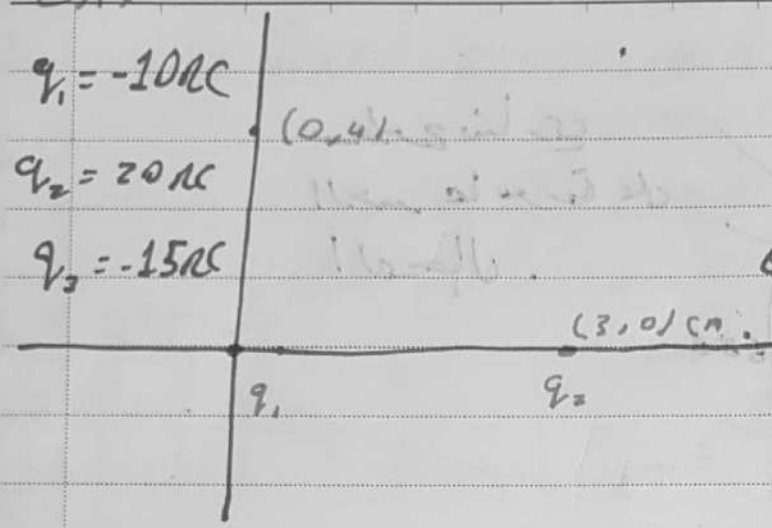 q₁ = -10nC
(0,4)
q₂ = 20nC
q₃ = -15nC
(3,0) cm.
q₁
q₂